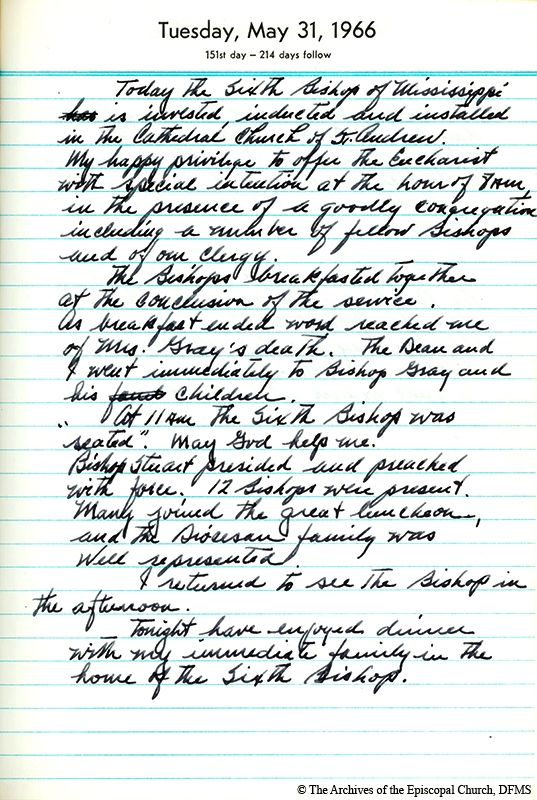 Tuesday, May 31, 1966
151st day – 214 days follow
Today the Sixth Bishop of Mississippi
has is invested, inducted and installed
in the Cathedral Church of St. Andrew.
My happy privilege to offer the Eucharist
with special intention at the hour of 7 AM,
in the presence of a goodly congregation
including a number of fellow Bishops
and of our clergy.
The Bishops breakfasted together
at the conclusion of the service.
As breakfast ended word reached me
of Mrs. Gray's death. The Dean and
I went immediately to Bishop Gray and
his children.
"At 11 AM the Sixth Bishop was
seated". May God help me.
Bishop Stuart presided and preached
with force. 12 Bishops were present.
Many joined the great luncheon,
and the Diocesan family was
well represented
I returned to see the Bishop in
the afternoon.
Tonight have enjoyed dinner
with my immediate family in the
home of the Sixth Bishop.
© The Archives of the Episcopal Church, DFMS